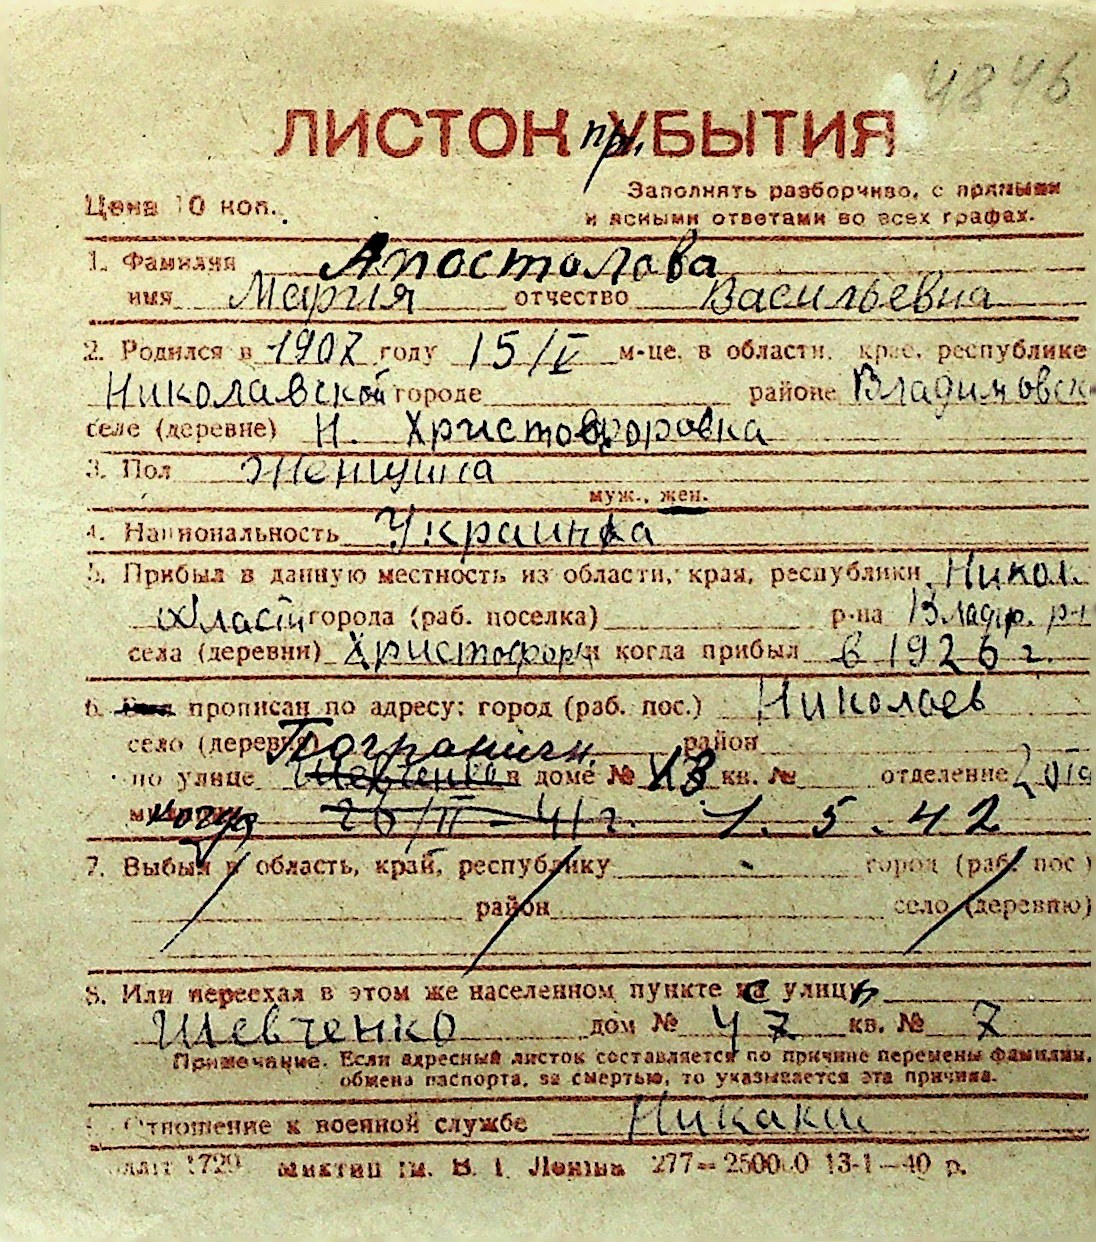 4846
ЛИСТОК пр. УБЫТИЯ
Цена 10 коп.
Заполнять разборчиво, с прямыми
и ясными ответами во всех графах.
1. Фамилия Апостолова
имя Мария отчество Васильевна
2. Родился в 1907 году 15/V м-це, в области, крае, республике
Николавской городе районе Владимовск
селе (деревне) Н. Христофоровка
3. Пол Женщина
муж., жен.
4. Национальность Украинка
5. Прибыл в данную местность из области, края, республики Никол.
области города (раб. поселка) р-на Владир. р-н
села (деревни) Христофор и когда прибыл в 1926 г.
6. прописан по адресу: город (раб. пос.) Николаев
село (деревня) Пограничн. район
по улице Шевченко в доме № кв. № отделение
когда 26/II-41 г. 1.5.42
7. Выбыл в область, край, республику город (раб. пос.)
район село (деревню)
8. Или переехал в этом же населенном пункте с улицы
Шевченко дом № 47 кв. № 7
Примечание. Если адресный листок составляется по причине перемены фамилии,
обмена паспорта, за смертью, то указывается эта причина.
Отношение к военной службе Никакии
1729 им. В. І. Леніна 277—13-1—40 р.